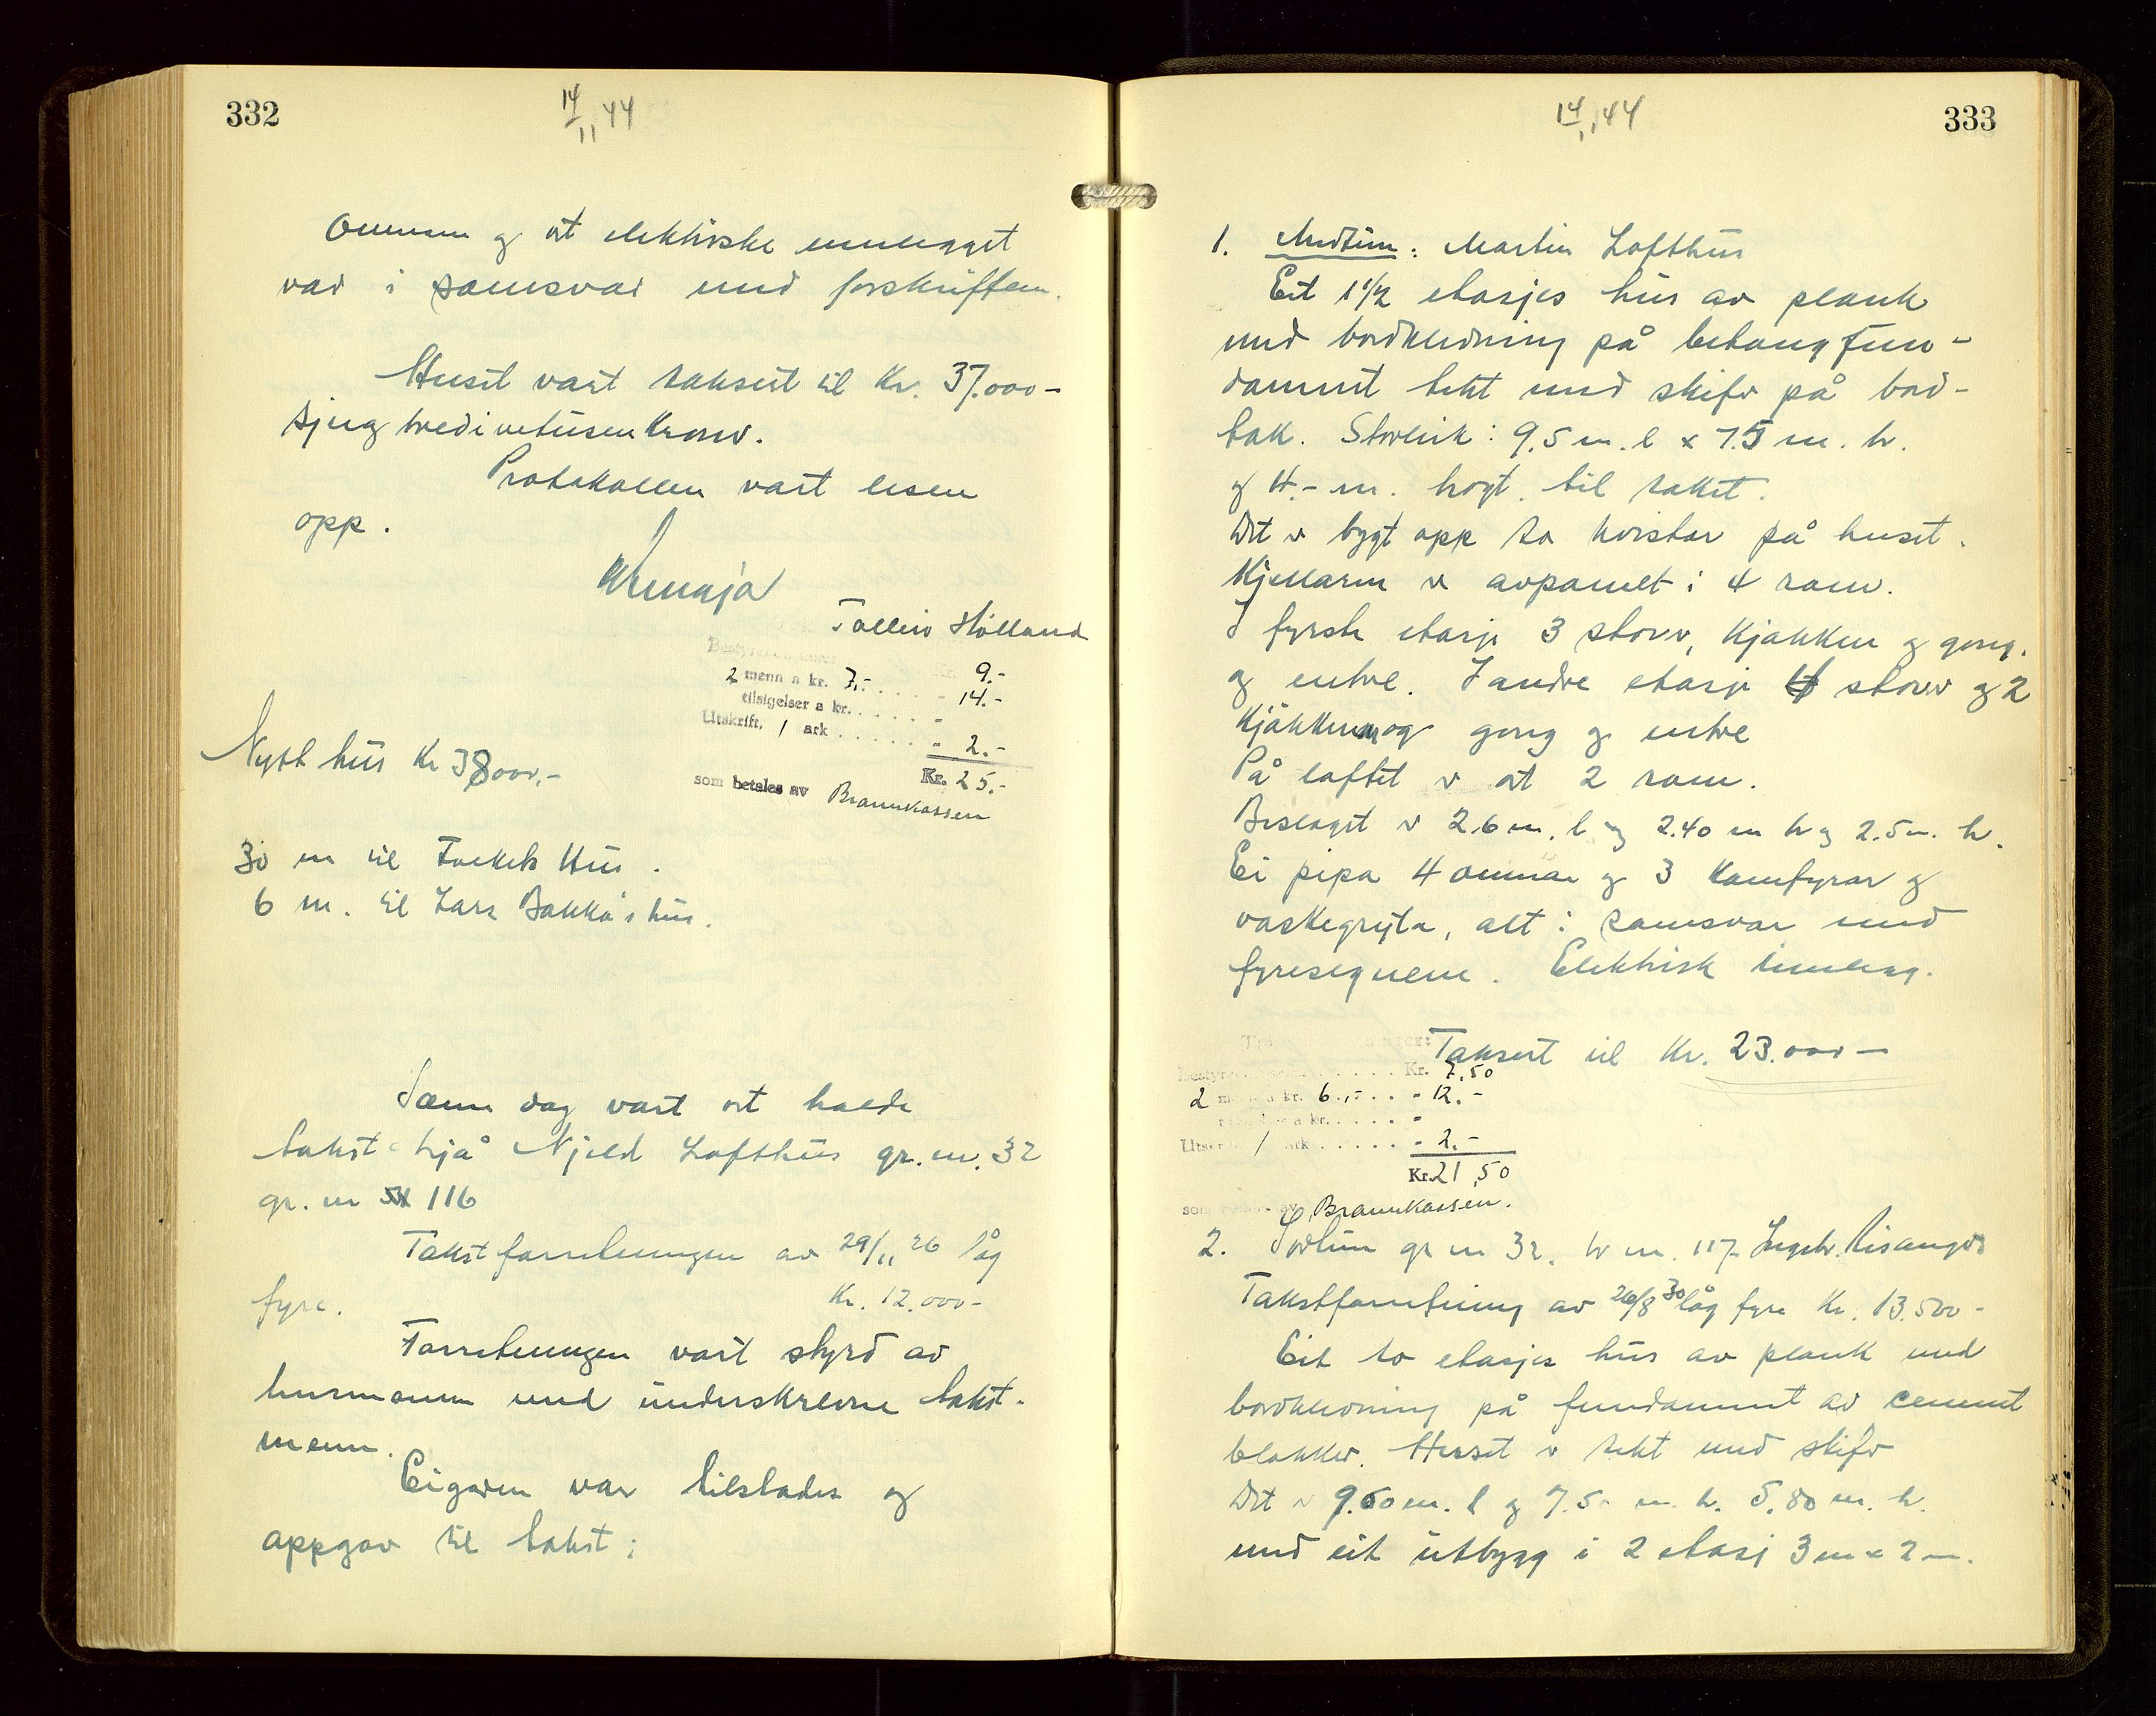 332
14/11 44
Omnen og at elektriske innlegget
var i samsvar med forskriften.
Huset vart taksert til Kr. 37.000-
sjuogtredivetusenkroner.
Protokollen vart lesen
opp.
Tollein Hølland
9.-
2 menn a kr. 7,- . . . - 14.-
tilsigelser a kr. . . . . . -
Utskrift, 1 ark . . . . . - 2.-
Kr. 25.-
som betales av Brannkassen
Nytt hus Kr 38000.-
30 m til Hus.
6 m. til Lars Bakka's hus.
Same dag vart det halde
takst hjå Njeld Lofthus gr. nr. 32
gr. nr 116
Takstforretningen av 29/11 26 låg
fyre. Kr. 12.000-
Forretningen vart styrd av
lensmannen med underskrevne takst-
menn.
Eigaren var tilstades og
oppgav til takst:
333
14/11 44
1. : Martin Lofthus
Eit 1 1/2 etasjes hus av plank
med bordkledning på betongfun-
dament tekt med skifer på bord-
tak. Storleik: 9,5 m. l x 7.5 m. br.
og 4.- m. høgt til taket.
Det er bygt opp to kvistar på huset.
Kjellaren er avpanelt i 4 rom.
I fyrste etasje 3 stover, kjøkken og gong.
og entre. I andre etasje 4 stover og 2
kjøkken og gong og entre
På loftet er det 2 rom.
Bislaget er 2.6 m. l og 2.40 m br og 2.5 m. h.
Ei pipa 4 omnar og 3 komfyrar og
vaskegryta, alt i samsvar med
fyresegnene. Elektrisk innlegg.
Taksert til Kr. 23.000-
Kr. 7,50
2 menn a kr. 6,- . . . - 12.-
Utskrift, 1 ark . . . . . - 2.-
Kr. 21,50
som betales av Brannkassen.
2. gr nr 32. br nr. 117 Ingebr. Risanger
Takstforretning av 26/8 30 låg fyre Kr. 13.500-
Eit to etasjes hus av plank med
bordkledning på fundament av cement
blokker. Huset er tekt med skifer
Det er 9.60 m. l og 7.50 m. br. 5,80 m. h.
med eit utbygg i 2 etasj 3 m x 2 m.